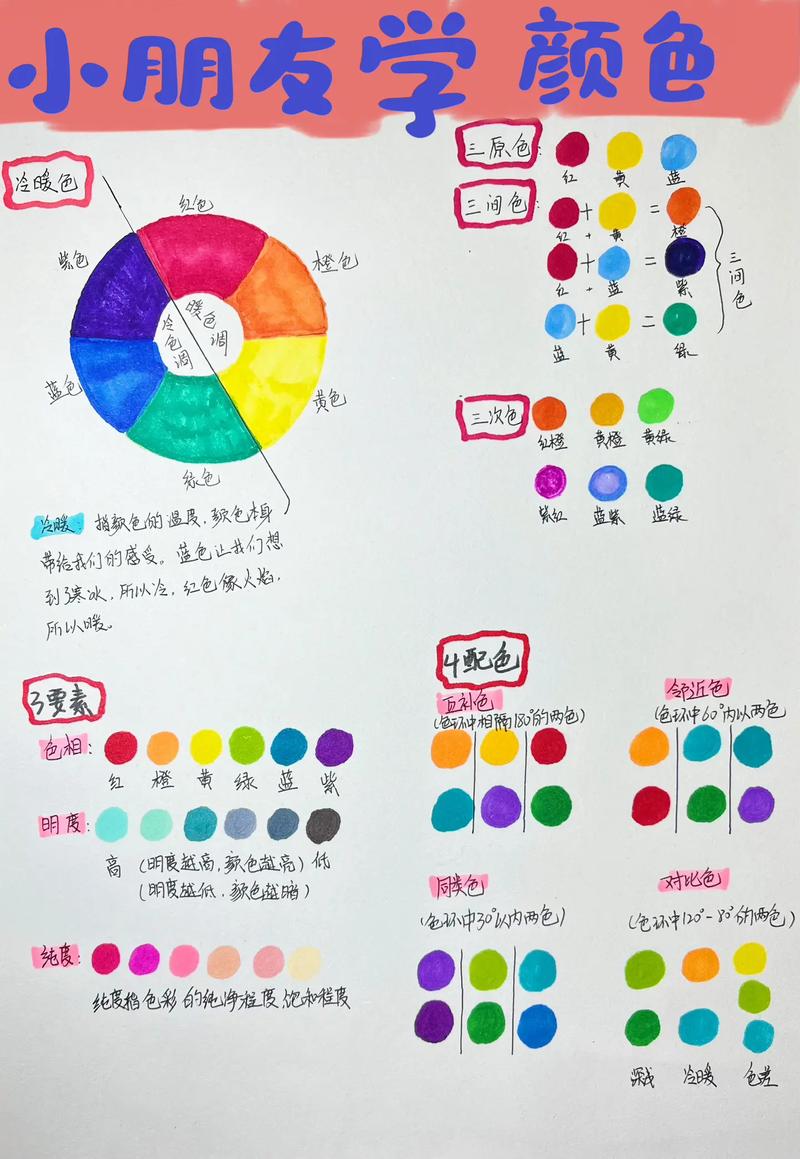 小朋友学 颜色
冷暖色
红色
紫色
橙色
暖色调
冷色调
蓝色
黄色
绿色
冷暖: 指颜色的温度,颜色本身
带给我们的感受。蓝色让我们想
到了寒冰,所以冷,红色像火焰,
所以暖。
三原色:
红 黄 蓝
三间色:
+ =
红 + 黄 橙
+ =
红 + 蓝 紫
+ =
蓝 黄 绿
三间色
三次色
红橙 黄橙 黄绿
紫红 蓝紫 蓝绿
3要素
色相:
红 橙 黄 绿 蓝 紫
明度:
高 (明度越高,颜色越亮) 低
(明度越低,颜色越暗)
纯度:
纯度指色彩的纯净程度饱和程度
4配色
互补色
(色环中相隔180°的两色)
邻近色
(色环中60°内以两色
同类色
(色环中30°以内两色)
对比色
(色环中120°-80°的两色)
深浅 冷暖 色差